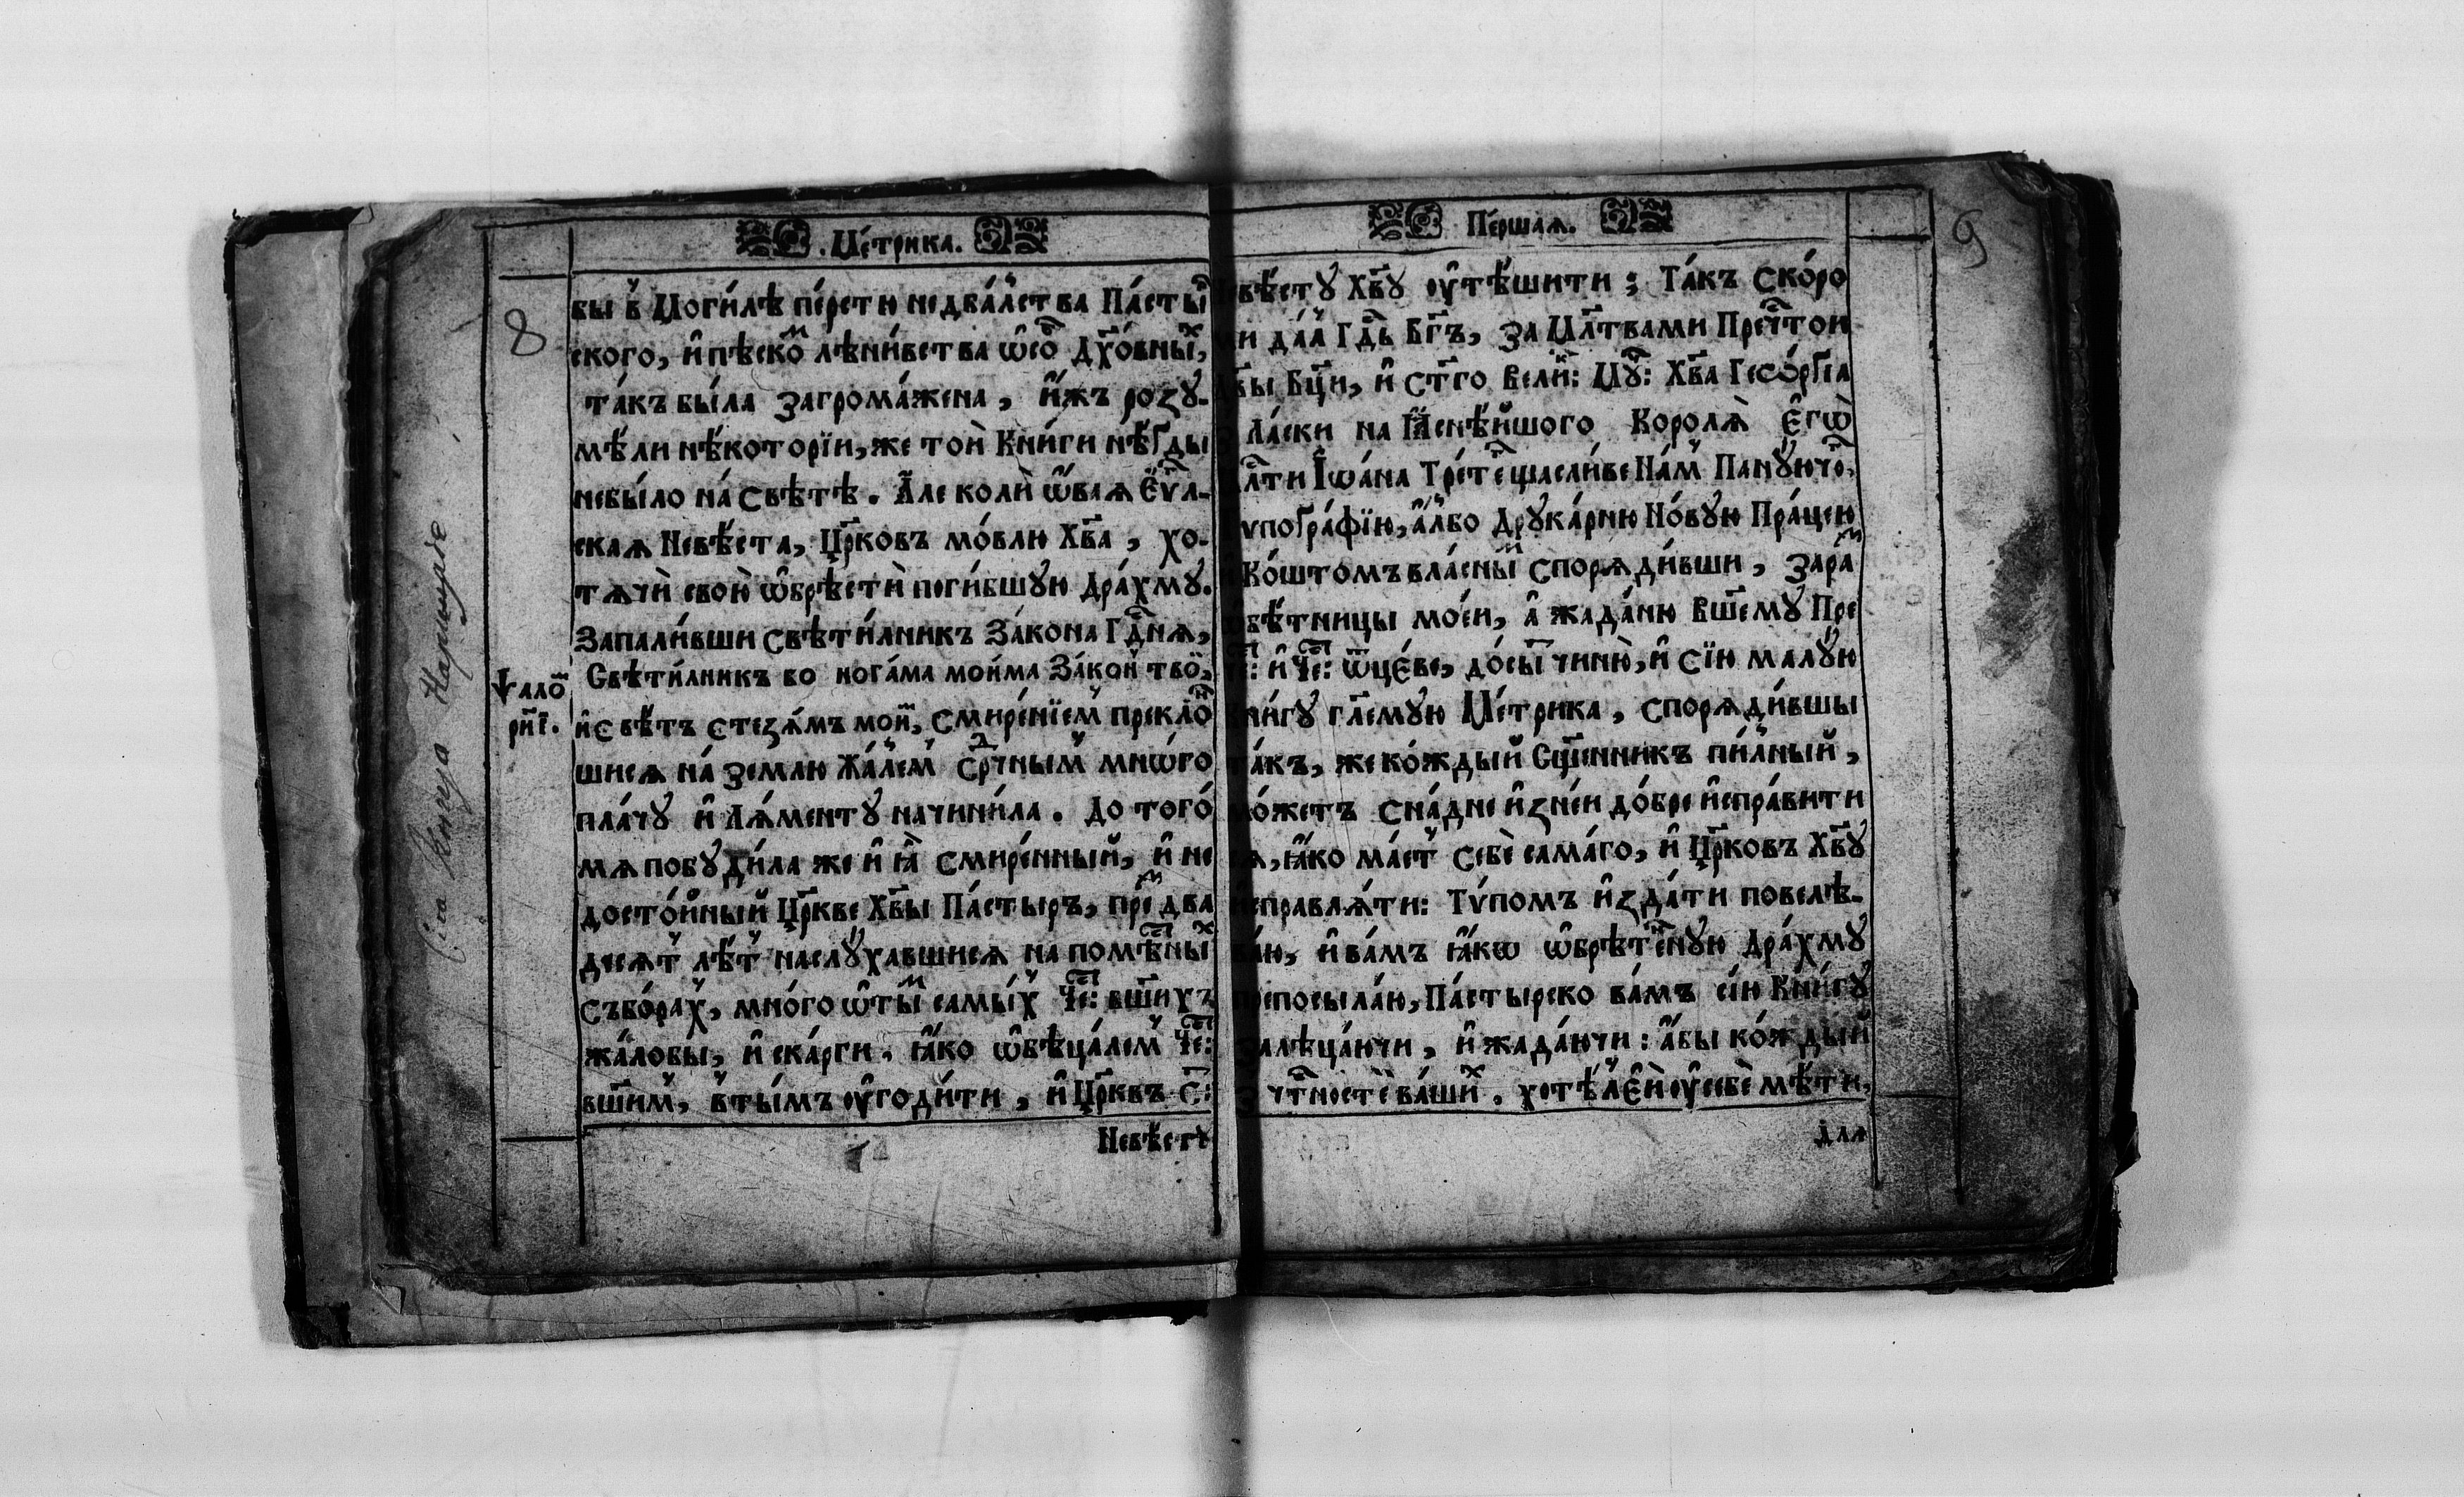 .Метрика.
8
бы в̾ Могилѣ перстю недба́л̾ства Па́стыⷬ
ского, и҆ пѣскоⷨ лѣни́вства ѡ҆соⷠ Дх҃о́вныⷯ,
та́къ была загрома́жена, и҆́жъ розꙋ-
мѣ́ли нѣ́которїи, же той Кни́ги нѣ́ґды
небы́ло на́ Свѣтѣ. А҆ле коли̇̀ ѡ҆́ваѧ
скаѧ Невѣ́ста, Цр҃ковъ мо́влю Хв҃а, хо-
тѧчи̇̀ свою̀ ѡ҆брѣ́сти̇̀ поги́бшꙋю Дра́хмꙋ.
Запали́вши Свѣти́лникъ За́кона Гд҃нѧ,
Свѣти́лникъ бо нога́ма мои́ма За́кон̾ твоⷤ,
и҆ Свѣ́тъ Стезѧ́мъ моиⷨ, Смире́нїем̾ прекло́
Ѱало́
рн҃і.
шисѧ на́ землю Жа́лем̾ Срⷣчным̾ мнѡ́го
пла́чꙋ и҆ Лѧ́ментꙋ начини́ла. До того́
мѧ побꙋди́ла же и҆ ꙗ҆̀ Смире́нный, и҆ не
досто́йный Цр҃кве Хв҃ы Па́стыръ, преⷨ два
десѧт̾ лѣ́т̾ наслꙋхавшисѧ на помѣⷭныⷯ
Събо́рах̾, мно́го ѡ҆тыⷨ самы́х̾ Чеⷭ: вш҃ихъ
жа́лобы, и҆ ска́рги. ꙗ҆́ко ѡ҆бѣца́лем̾ Чеⷭ:
вш҃им̾, в̾ ты́мъ оу҆годи́ти, и҆ Цр҃квъ С҃:
Невѣстꙋ
Пе́ршаѧ.
9
Невѣ́стꙋ Хв҃ꙋ оу҆тѣ́шити; Та́къ Ско́ро
ми да́л̾ Гдⷭь Бг҃ъ, за Мл҃твами Преⷭчтои
Дв҃ы Бц҃и, и҆ Ст҃го Вели: Мꙋⷱ: Хв҃а Геѡ́рґїа
Ла́ски на ꙗ҆снѣ́йшого Королѧ̀ Е҆гѡ̀
І҆ѡа́на Тре́теⷢ щасли́ве На́м̾ Панꙋ́ючоⷢ,
Тѵпоґра́фїю, а҆́лбо Дрꙋка́рню Но́вꙋю Пра́цею
и Ко́штомъ вла́сныⷨ Спорѧди́вши, зараⷥ
ѡбѣ́тницы мое́й, а҆ жада́ню Вш҃емꙋ Пре
чⷭ: и҆ Чеⷭ: ѿце́ве, до́сыⷮ чиню̀, и҆ Сїю малꙋю
кни́гꙋ гл҃емꙋю Ме́трика, спорѧди́вшы
та́къ, же ко́ждый Сщ҃енникъ пи́лный,
мо́жетъ Сна́дне и҆ зне́и до́бре и҆спра́вити
сѧ, ꙗ҆́ко ма́ет̾ Себѐ сама́го, и҆ Цр҃ковъ Хв҃ꙋ
и҆справлѧ́ти: Тѵ́помъ и҆зда́ти повелѣ-
ва́ю, и҆ ва́мъ ꙗ҆́кѡ ѡ҆брѣте́нꙋю Дра́хмꙋ
препосыла́ю, Па́стырско ва́мъ сі́ю Кни́гꙋ
залѣца́ючи, и҆ жада́ючи: а҆́бы ко́ждый
з чтⷭности ва́шиⷯ. хотѣ́л̾ е҆й оу҆себѐ мѣ́ти,
для